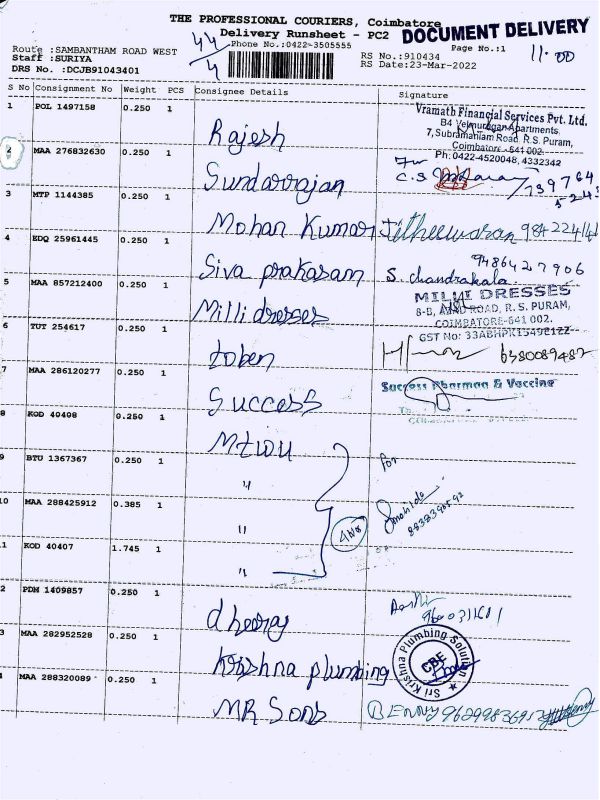 THE PROFESSIONAL COURIERS, Coimbatore
Delivery Runsheet - PC2
DOCUMENT DELIVERY
Phone No.:0422-3505555
Page No.:1
11.00
44
4
Route :SAMBANTHAM ROAD WEST
Staff :SURIYA
DRS No. :DCJB91043401
RS No.:910434
RS Date:23-Mar-2022
S No Consignment No Weight PCS Consignee Details Signature
1 POL 1497158 0.250 1 Rajesh
Vramath Financial Services Pvt. Ltd.
B4 Velmurugan Apartments
7, Subramaniam Road, R.S. Puram,
Coimbatore - 641 002.
Ph: 0422-4520048, 4332342
2 MAA 276832630 0.250 1 Sundarrajan
3 MTP 1144385 0.250 1 Mohan Kumar
4 EDQ 25961445 0.250 1 Siva prakasam
9486427906
S. Chandrakala
5 MAA 857212400 0.250 1 Milli dresses
MILLI DRESSES
8-B, AZAD ROAD, R. S. PURAM,
COIMBATORE-641 002.
6 TUT 254617 0.250 1 token
6380089482
7 MAA 286120277 0.250 1 Success
Success Pharmaa & Vaccine
8 KOD 40408 0.250 1 Mtwu
for
9 BTU 1367367 0.250 1 "
10 MAA 288425912 0.385 1 "
11 KOD 40407 1.745 1 "
12 PDH 1409857 0.250 1 dheeraj
13 MAA 282952528 0.250 1 Krishna plumbing
Sri Krishna Plumbing Solution
CBE
14 MAA 288320089 0.250 1 MR Sons
BENNY